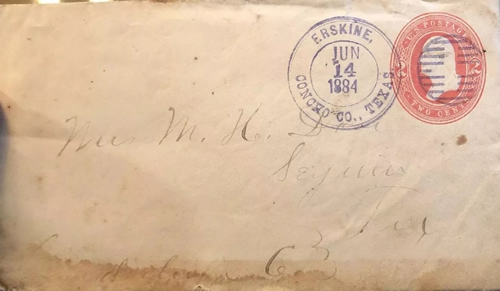 ERSKINE,
JUN
14
1884
CONCHO CO., TEXAS
U.S. POSTAGE
TWO CENTS
Mrs M. H.
Seguin
Tex
Co